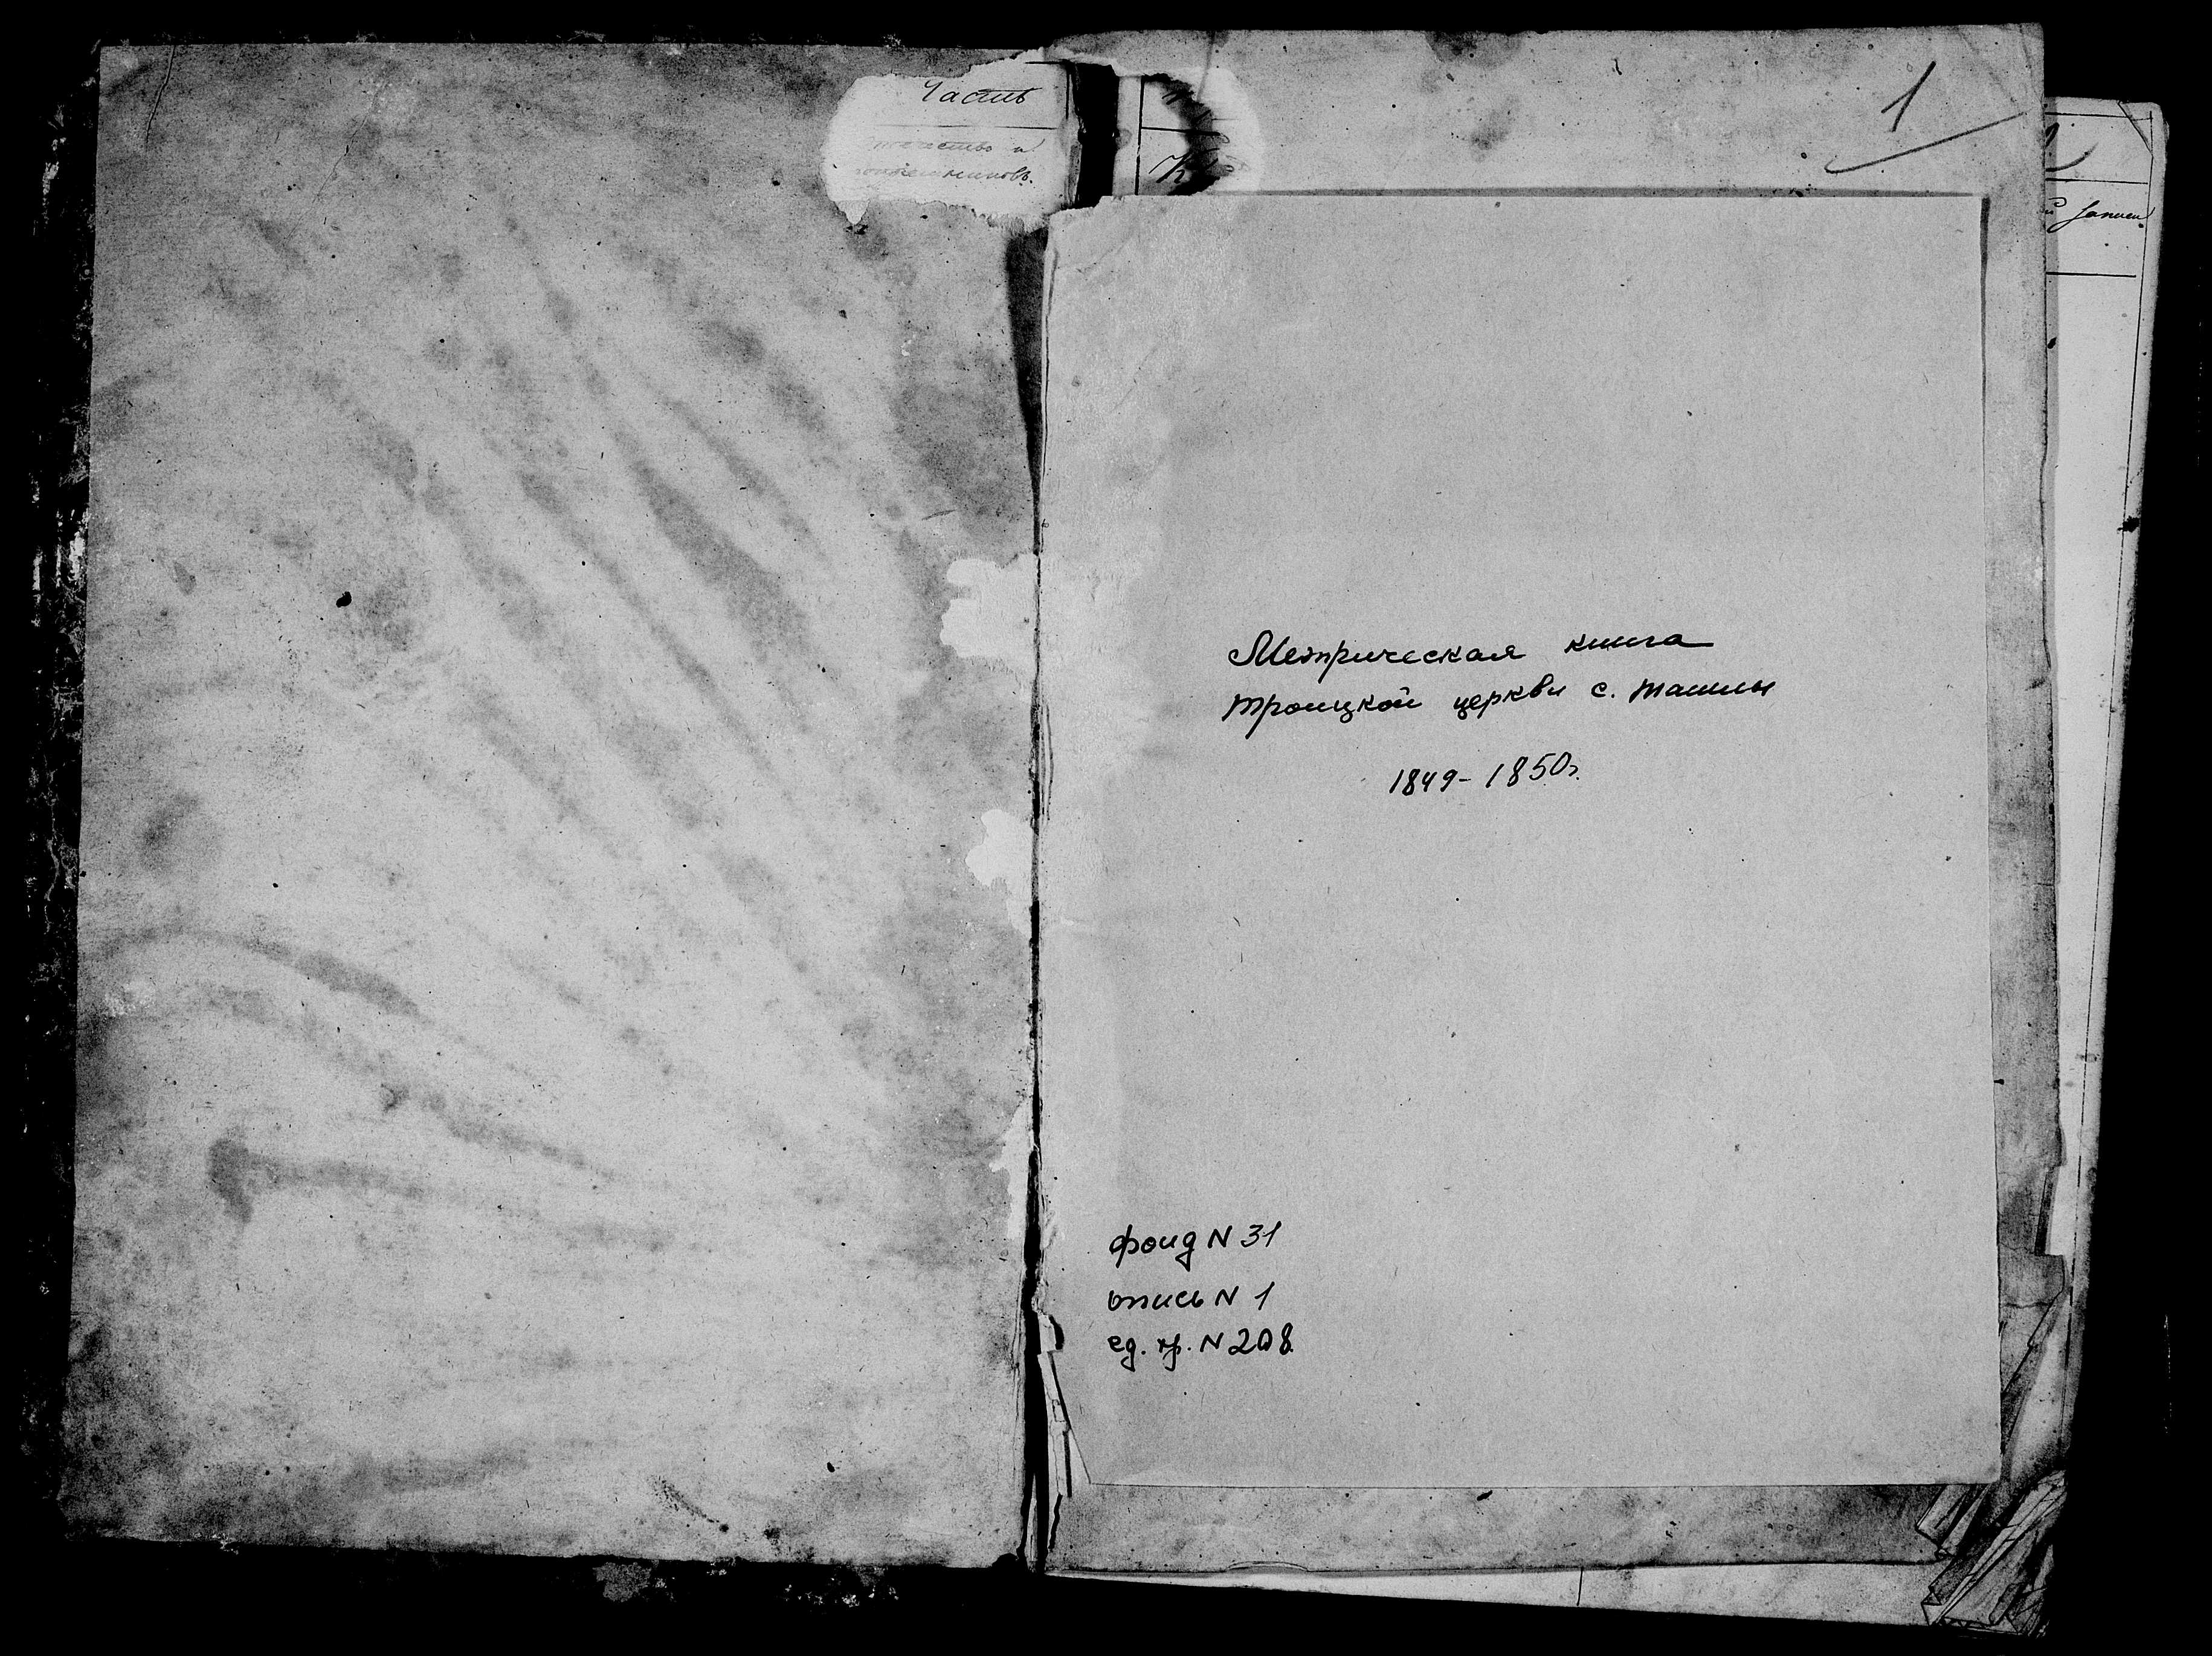 Часть
1
Метрическая книга
Троицкой церкви с. Ташлы
1849-1850г.
фонд N 31
опись N 1
ед. хр. N 208.